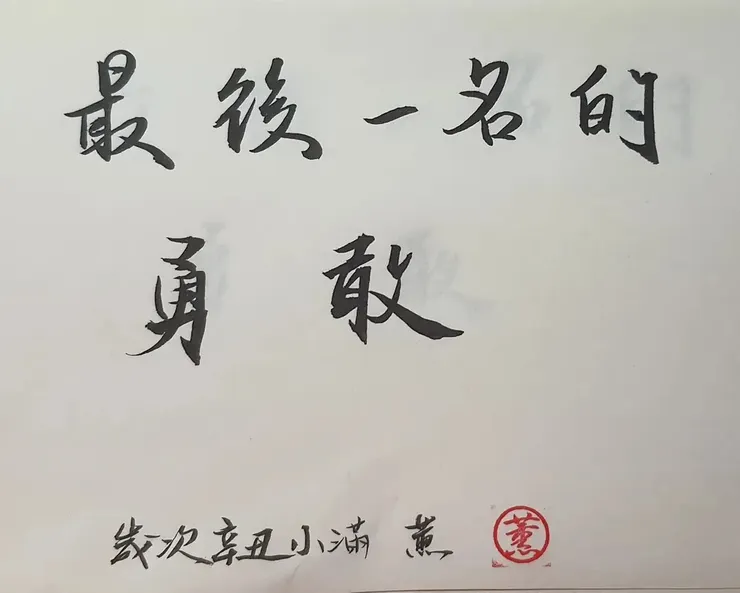 最後一名的
勇敢
歲次辛丑小滿 薰
薰